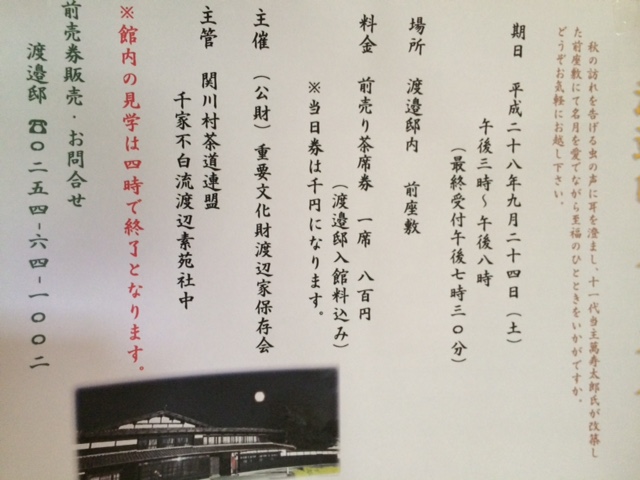 秋の訪れを告げる虫の声に耳を澄まし、十一代当主萬寿太郎氏が改築し
た前座敷にて名月を愛でながら至福のひとときをいかがですか。
どうぞお気軽にお越し下さい。
期日 平成二十八年九月二十四日（土）
午後三時～午後八時
（最終受付午後七時三〇分）
場所 渡邉邸内 前座敷
料金 前売り茶席券 一席 八百円
（渡邉邸入館料込み）
※当日券は千円になります。
主催 （公財）重要文化財渡辺家保存会
主管 関川村茶道連盟
千家不白流渡辺素苑社中
※館内の見学は四時で終了となります。
前売券販売・お問合せ
渡邉邸 ☎０２５４－６４－１００２